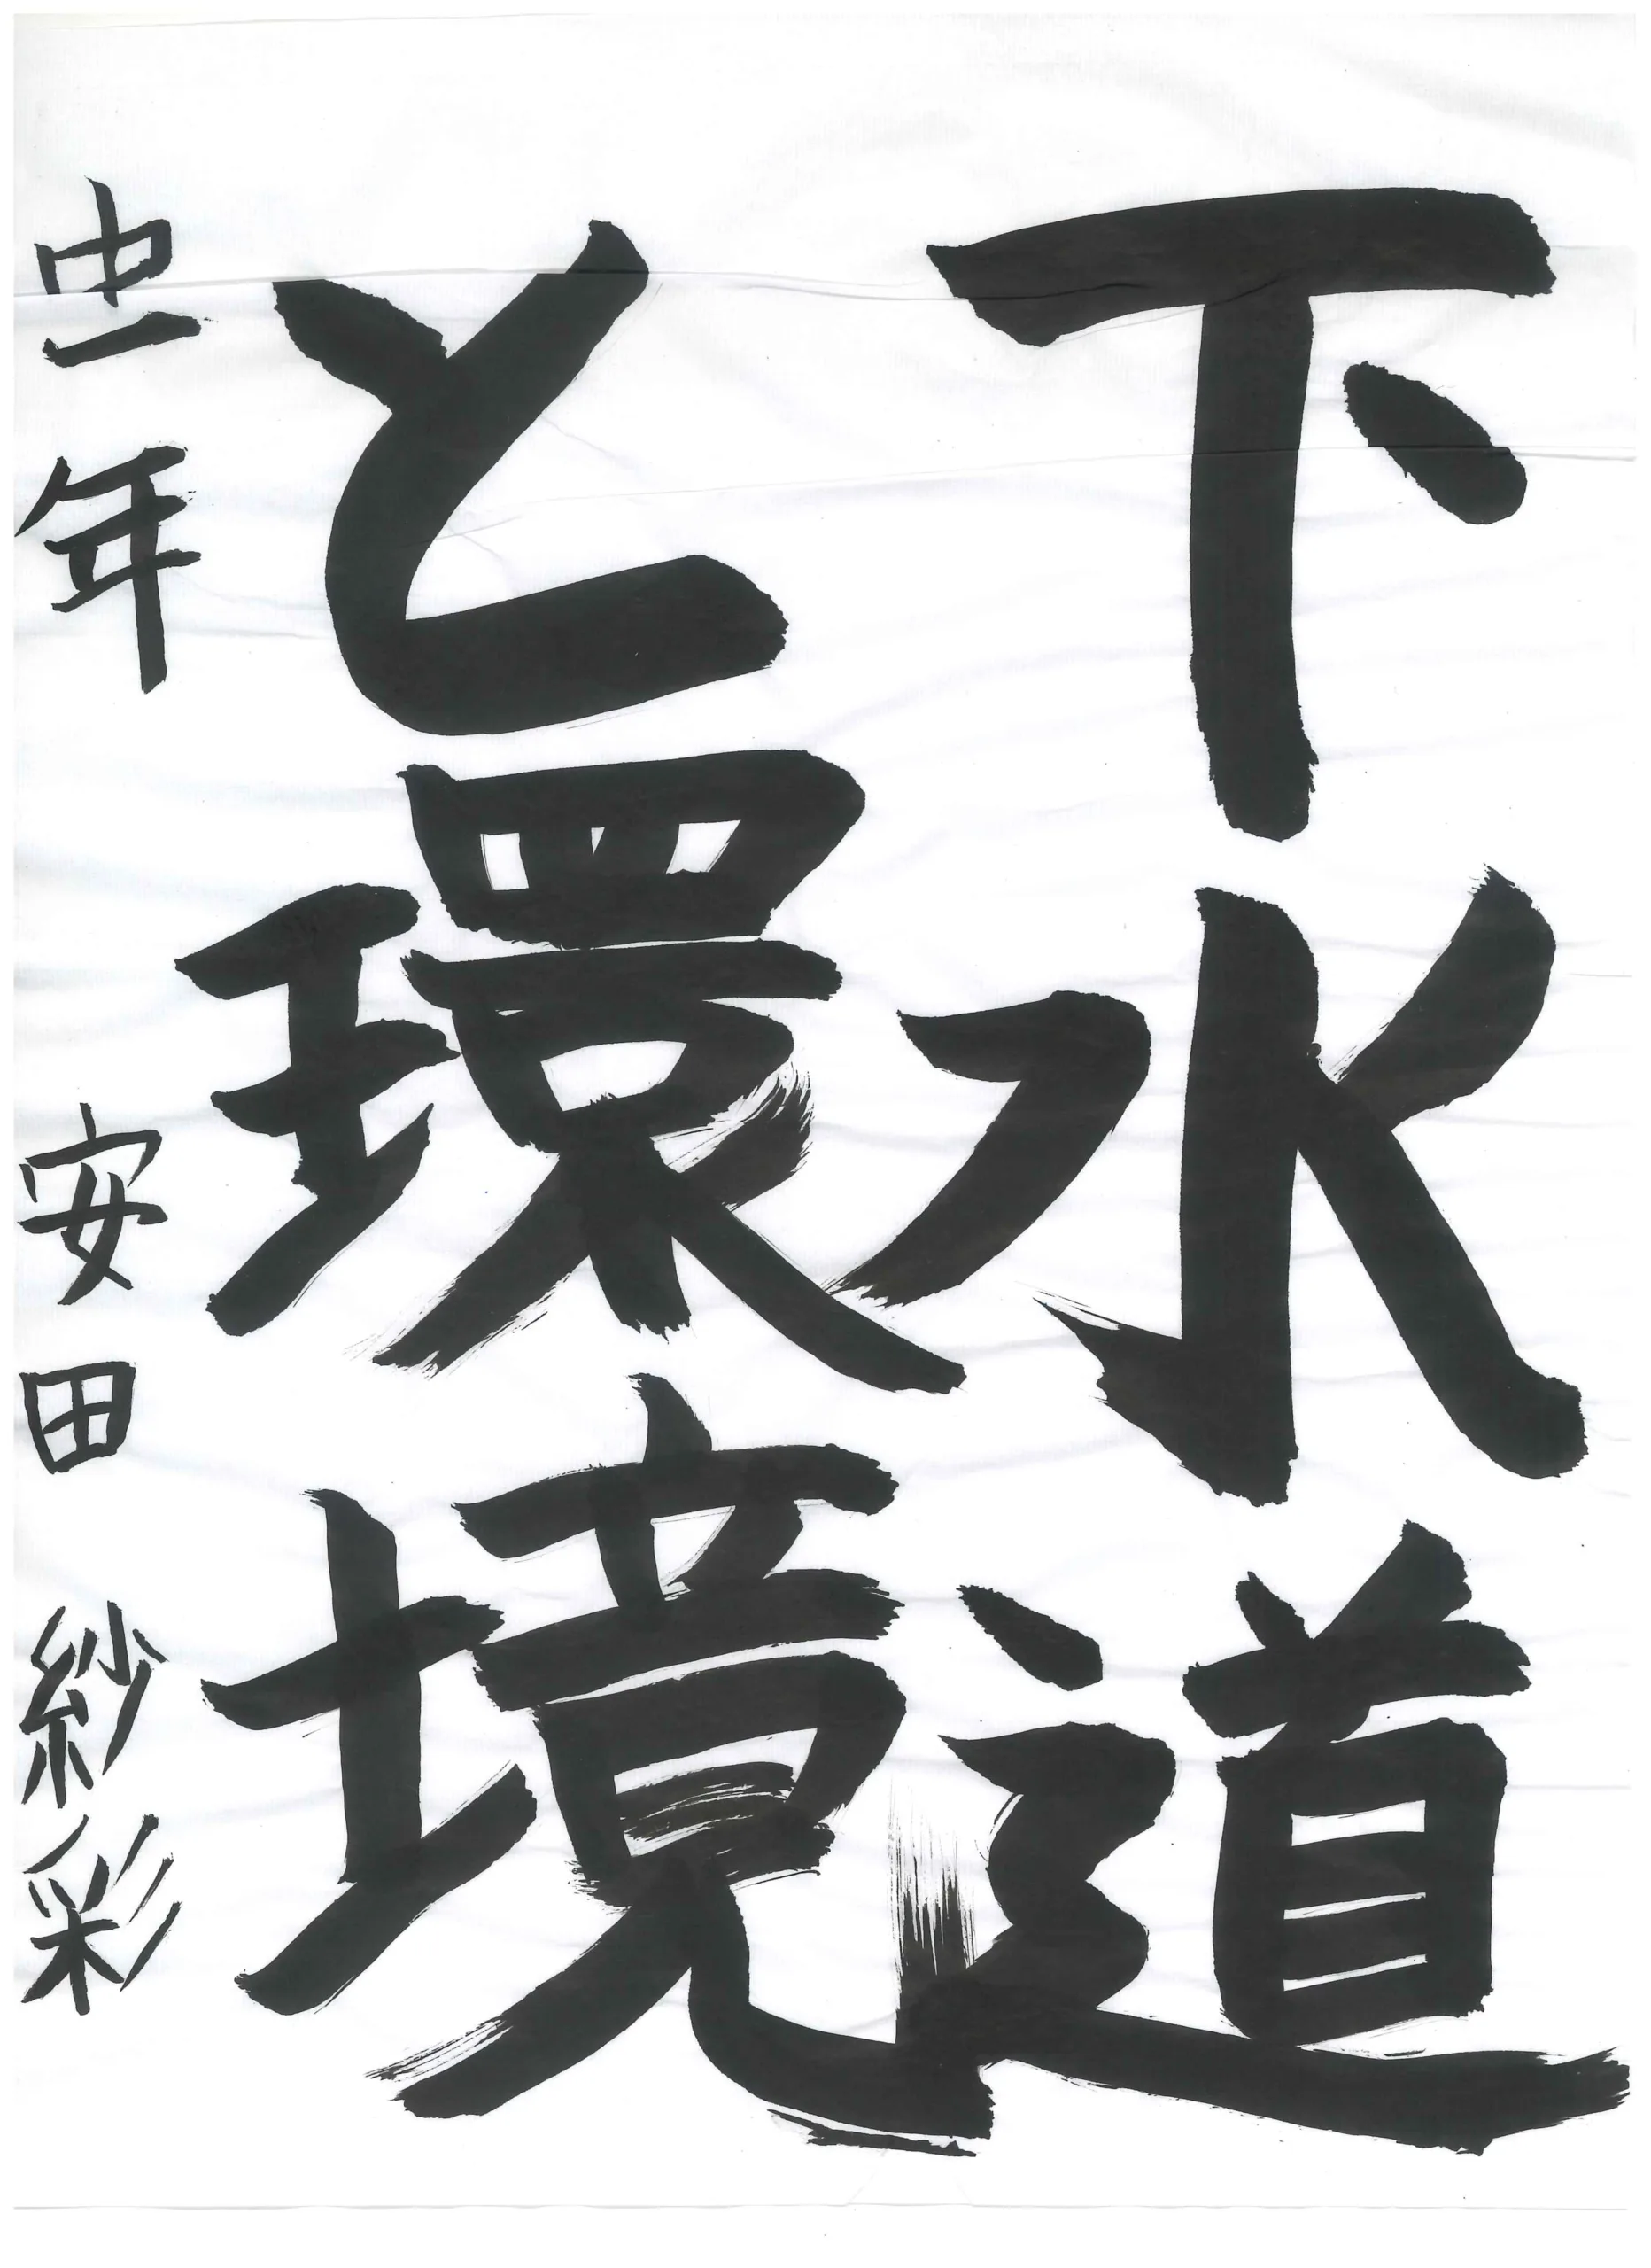 下水道
と環境
中一年 安田 紗彩